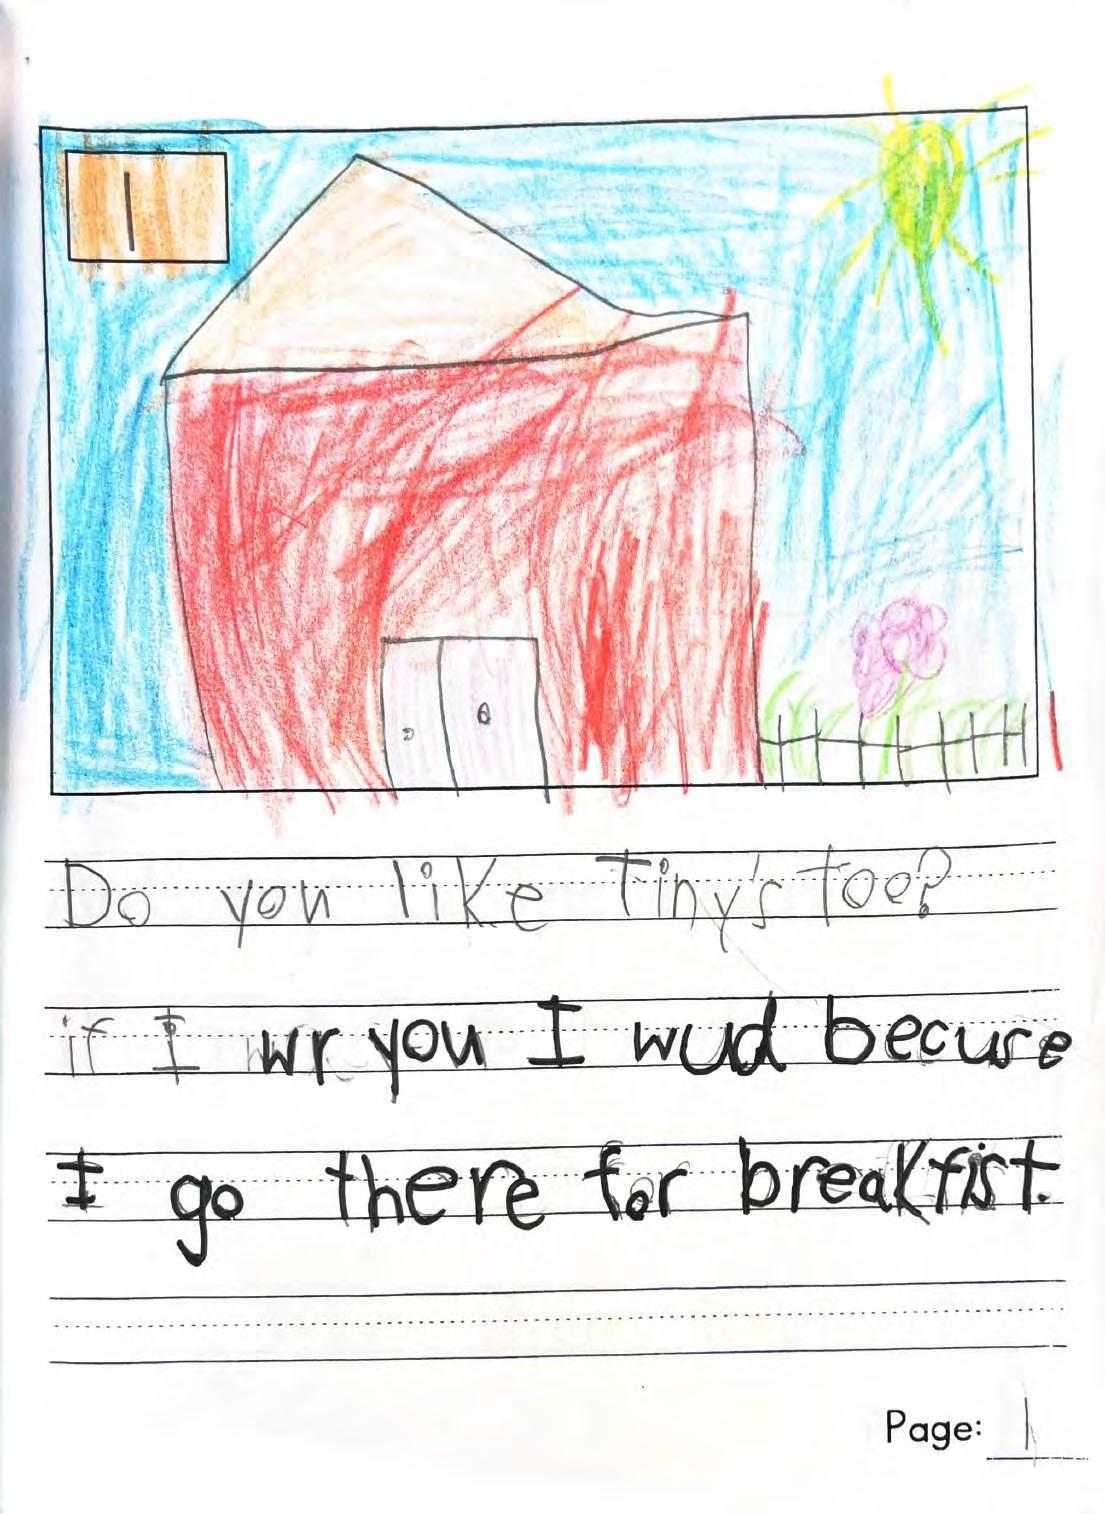 1
Do you like Tiny's toe?
if I wr you I wud becuse
I go there for breakfist.
Page: 1